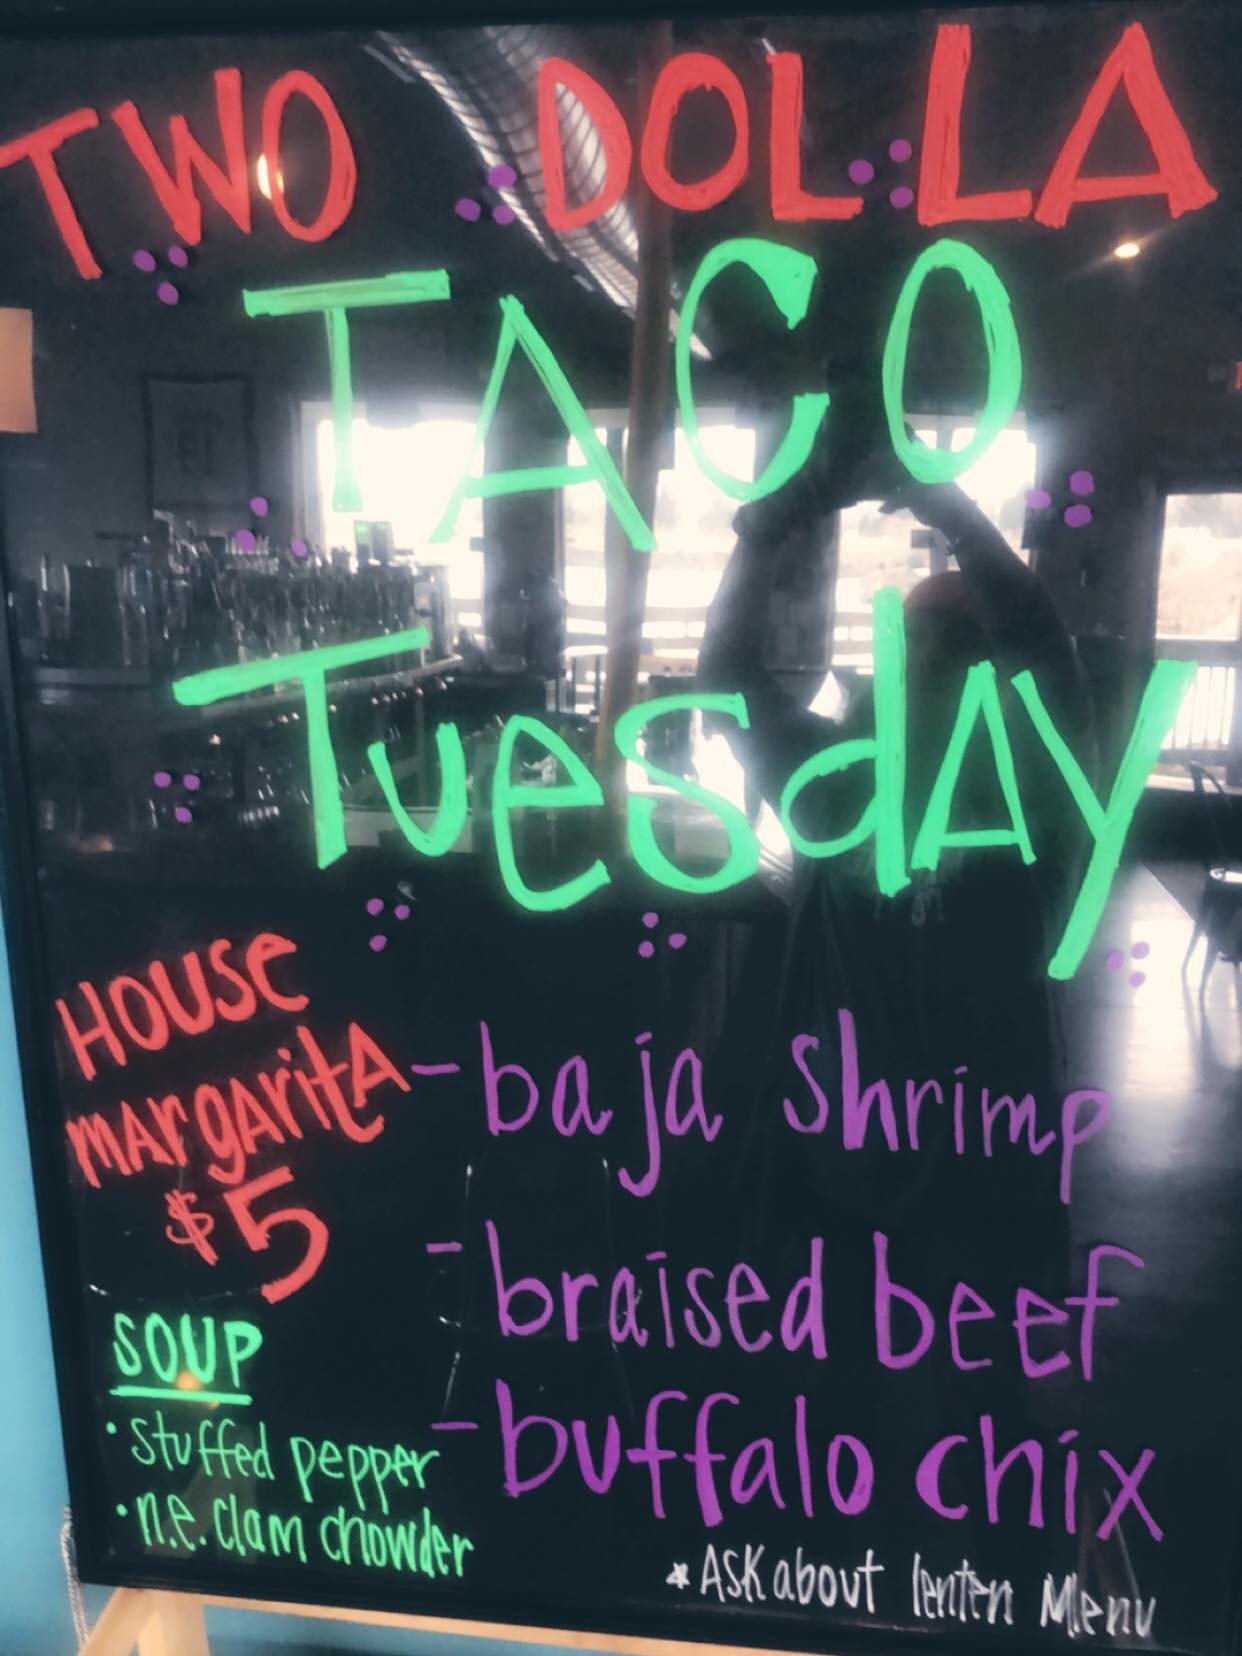 TWO DOLLA
TACO
TuesdAy
HOUSe
mArgAritA
$5
- baja shrimp
- braised beef
- buffalo chix
SOUP
• stuffed pepper
• n.e. clam chowder
* ASK about lenten Menu